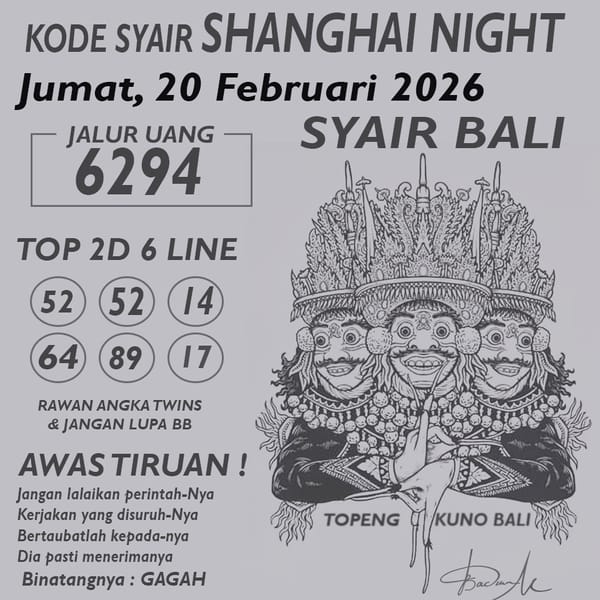 KODE SYAIR SHANGHAI NIGHT
Jumat, 20 Februari 2026
JALUR UANG
6294
SYAIR BALI
TOP 2D 6 LINE
52 52 14
64 89 17
RAWAN ANGKA TWINS
& JANGAN LUPA BB
AWAS TIRUAN !
Jangan lalaikan perintah-Nya
Kerjakan yang disuruh-Nya
Bertaubatlah kepada-nya
Dia pasti menerimanya
Binatangnya : GAGAH
TOPENG KUNO BALI